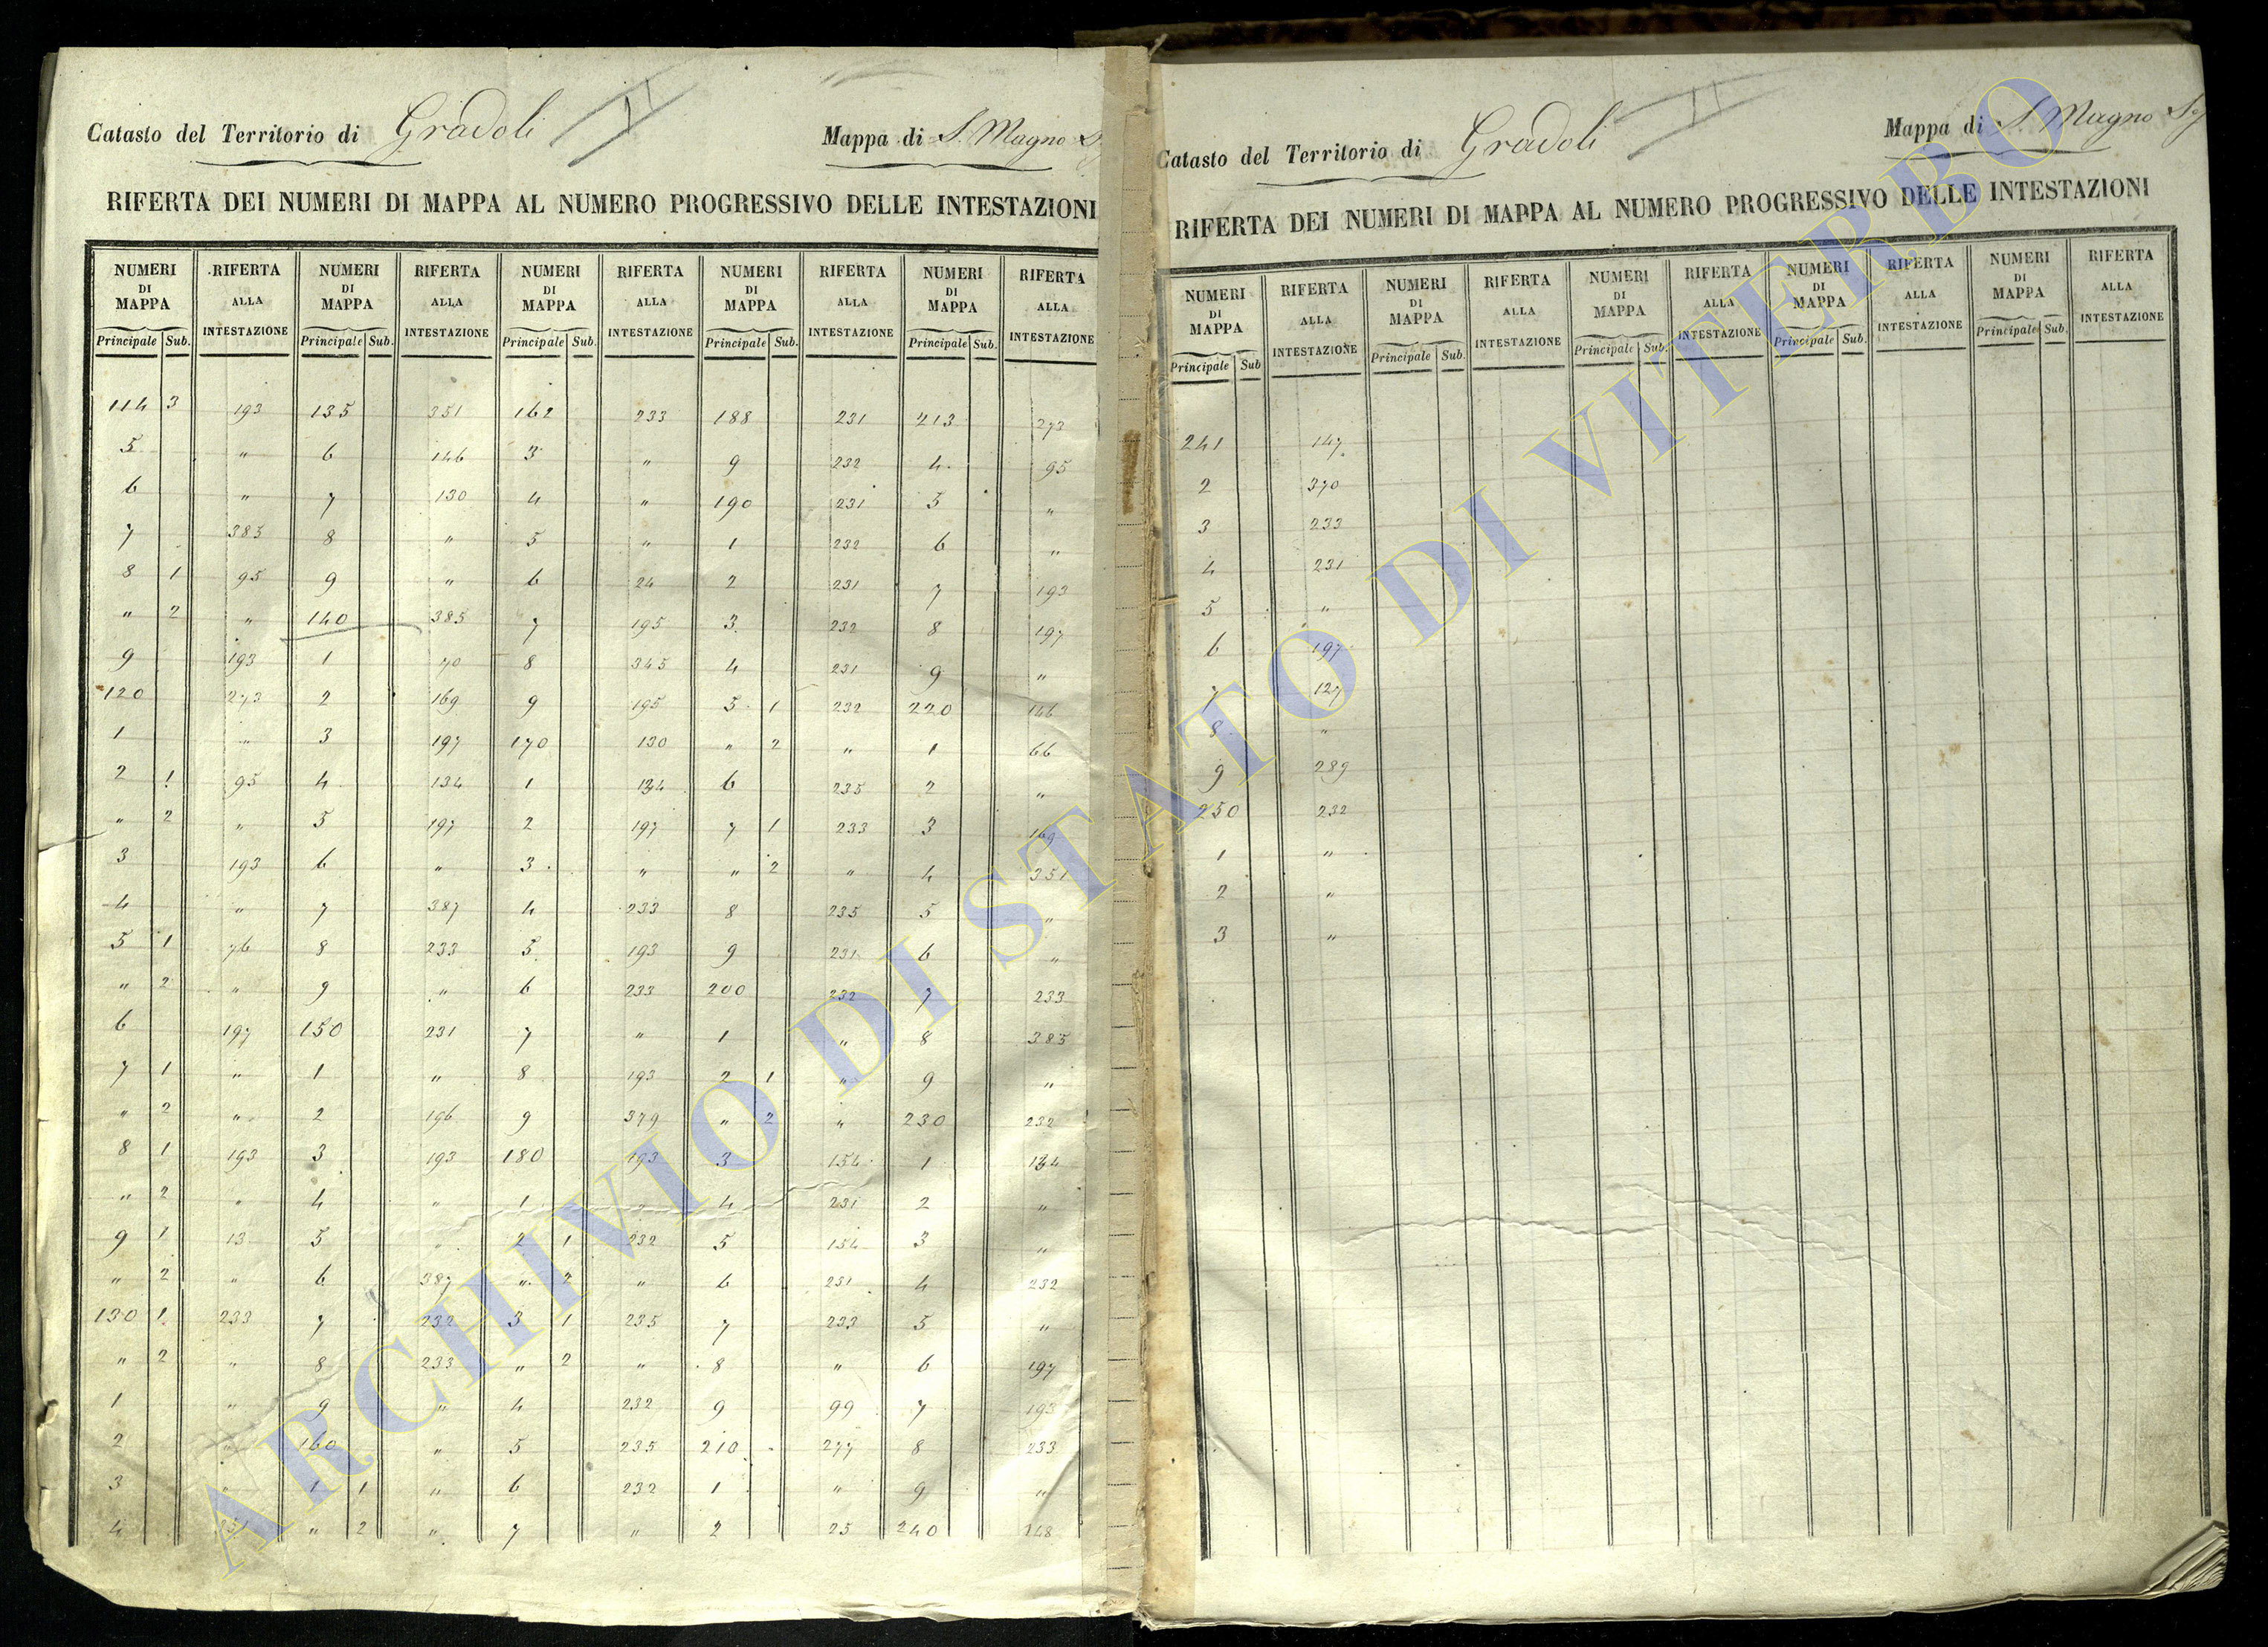 Catasto del Territorio di Gradoli II Mappa di S. Magno
RIFERTA DEI NUMERI DI MAPPA AL NUMERO PROGRESSIVO DELLE INTESTAZIONI
NUMERI DI MAPPA RIFERTA ALLA INTESTAZIONE NUMERI DI MAPPA RIFERTA ALLA INTESTAZIONE NUMERI DI MAPPA RIFERTA ALLA INTESTAZIONE NUMERI DI MAPPA RIFERTA ALLA INTESTAZIONE NUMERI DI MAPPA RIFERTA ALLA INTESTAZIONE
Principale Sub. Principale Sub. Principale Sub. Principale Sub. Principale Sub.
114 3 193 135 351 162 233 188 231 213 273
5 " 6 146 3 " 9 232 4 95
6 " 7 130 4 " 190 231 5 "
7 385 8 " 5 " 1 232 6 "
8 1 95 9 " 6 24 2 231 7 193
" 2 " 140 385 7 195 3 232 8 197
9 193 1 70 8 345 4 231 9 "
120 273 2 169 9 195 5 1 232 220 146
1 " 3 197 170 130 " 2 " 1 66
2 1 95 4 134 1 134 6 235 2 "
" 2 " 5 197 2 197 7 1 233 3 169
3 193 6 " 3 " " 2 " 4 351
4 " 7 387 4 233 8 235 5 "
5 1 76 8 233 5 193 9 231 6 "
" 2 " 9 " 6 233 200 232 7 233
6 197 150 231 7 " 1 " 8 385
7 1 " 1 " 8 193 2 1 " 9 "
" 2 " 2 196 9 379 " 2 " 230 232
8 1 193 3 193 180 193 3 154 1 134
" 2 " 4 " 1 " 4 231 2 "
9 1 13 5 " 2 1 232 5 154 3 "
" 2 " 6 387 " 2 " 6 231 4 232
130 1 233 7 232 3 1 235 7 233 5 "
" 2 " 8 233 " 2 " 8 " 6 197
1 " 9 " 4 232 9 99 7 193
2 " 160 " 5 235 210 277 8 233
3 " 1 1 " 6 232 1 " 9 "
4 " 2 " 7 " 2 25 240 148
Catasto del Territorio di Gradoli II Mappa di S Magno
RIFERTA DEI NUMERI DI MAPPA AL NUMERO PROGRESSIVO DELLE INTESTAZIONI
NUMERI DI MAPPA RIFERTA ALLA INTESTAZIONE NUMERI DI MAPPA RIFERTA ALLA INTESTAZIONE NUMERI DI MAPPA RIFERTA ALLA INTESTAZIONE NUMERI DI MAPPA RIFERTA ALLA INTESTAZIONE NUMERI DI MAPPA RIFERTA ALLA INTESTAZIONE
Principale Sub Principale Sub. Principale Sub. Principale Sub. Principale Sub.
241 147
2 370
3 233
4 231
5 "
6 197
7 127
8 "
9 289
250 232
1 "
2 "
3 "
ARCHIVIO DI STATO DI VITERBO